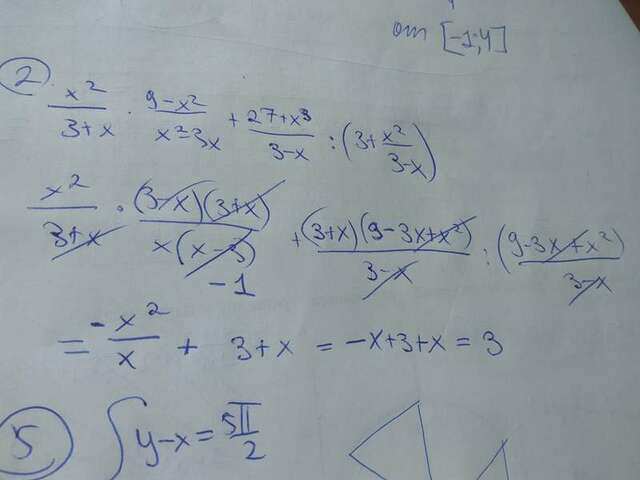 от [-1;4]
② x²/(3+x) · (9-x²)/(x²-3x) + (27+x³)/(3-x) : (3+x²/(3-x))
x²/(3+x) · (3-x)(3+x)/(x(x-3)) + (3+x)(9-3x+x²)/(3-x) : (9-3x+x²)/(3-x)
-1
= -x²/x + 3+x = -x+3+x = 3
⑤ ∫ y-x = 5π/2